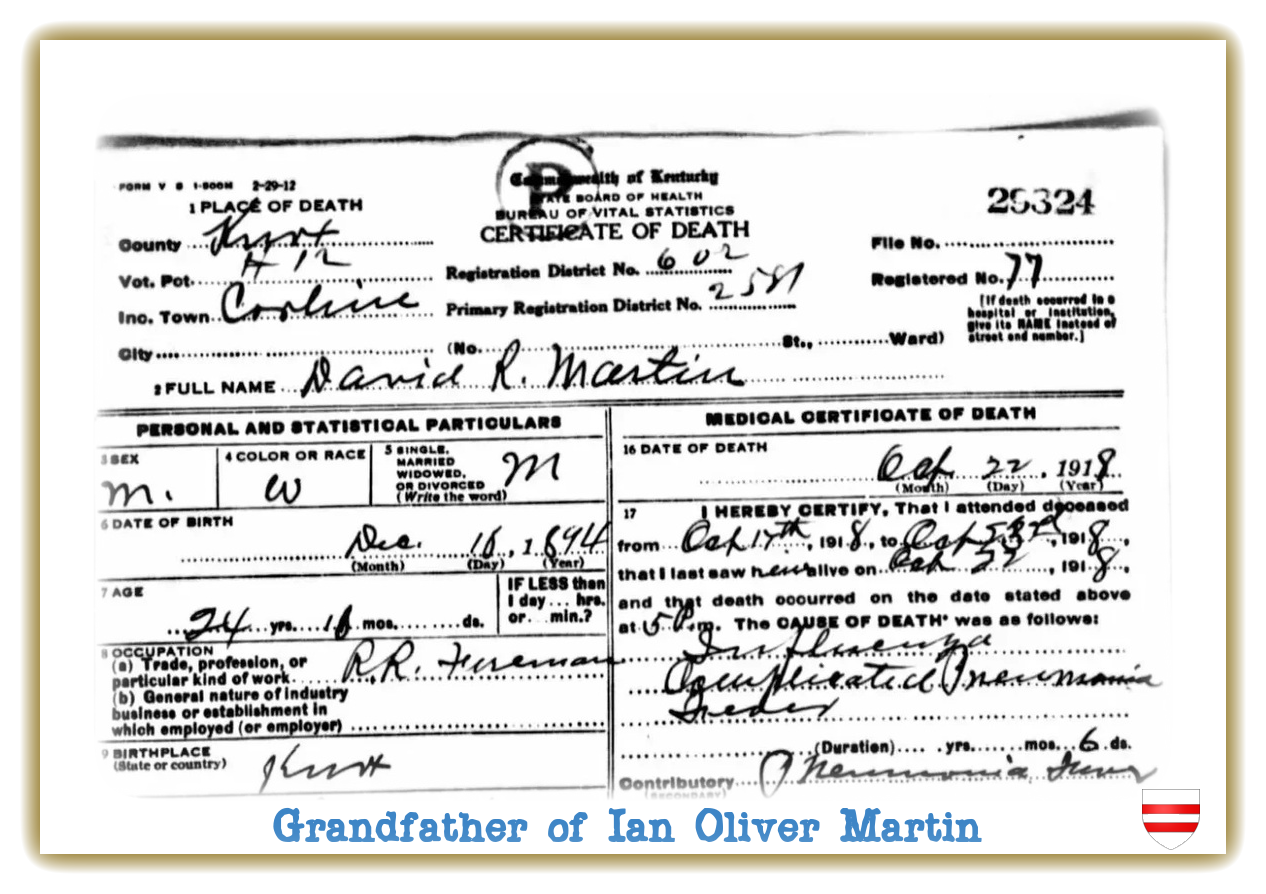 FORM V S 1-500M 2-29-12
Commonwealth of Kentucky
STATE BOARD OF HEALTH
BUREAU OF VITAL STATISTICS
CERTIFICATE OF DEATH
25324
1 PLACE OF DEATH
County Knox
Vot. Pct. # 12
Inc. Town
City
Registration District No. 602
Primary Registration District No. 2581
(No. St., Ward)
File No.
Registered No. 77
[If death occurred in a
hospital or institution,
give its NAME instead of
street and number.]
2 FULL NAME David R. Martin
PERSONAL AND STATISTICAL PARTICULARS
3 SEX
M.
4 COLOR OR RACE
W
5 SINGLE,
MARRIED
WIDOWED,
OR DIVORCED
(Write the word)
M
6 DATE OF BIRTH
Dec. , 1894
(Month) (Day) (Year)
7 AGE
24 yrs. 10 mos. ds.
IF LESS than
1 day... hrs.
or... min.?
8 OCCUPATION
(a) Trade, profession, or
particular kind of work R.R. Fireman
(b) General nature of industry
business or establishment in
which employed (or employer)
9 BIRTHPLACE
(State or country)
MEDICAL CERTIFICATE OF DEATH
16 DATE OF DEATH
Oct. 22, 1918
(Month) (Day) (Year)
17 I HEREBY CERTIFY, That I attended deceased
from Oct 17th, 1918, to Oct , 1918,
that I last saw h alive on Oct 22, 1918,
and that death occurred on the date stated above
at 5 P.m. The CAUSE OF DEATH* was as follows:
Influenza
Complicated Pneumonia
Fever
(Duration) yrs. mos. 6 ds.
Contributory Pneumonia Fever
(SECONDARY)
Grandfather of Ian Oliver Martin